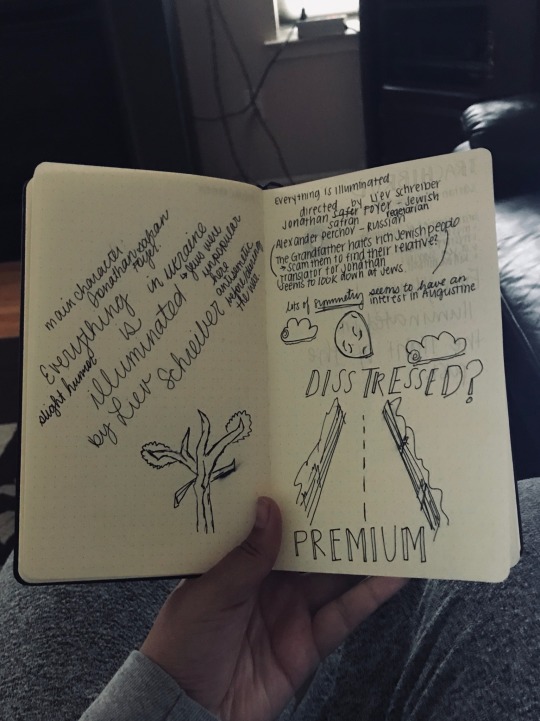 main character:
Jonathan
Foyer.
Everything in ukraine
is
illuminated
slight humor
by Liev Schreiber
Jews were
unpopular
here
antisemitic
before/during
the war.
Everything is Illuminated
directed by Liev schreiber
Jonathan Safer Foyer - Jewish
safran vegetarian
Alexander Perchov - Russian
The Grandfather hates rich Jewish people
→ scam them to find their relative?
translator for Jonathan
seems to look down at Jews.
Lots of symmetry seems to have an
interest in Augustine
DISSTRESSED?
PREMIUM